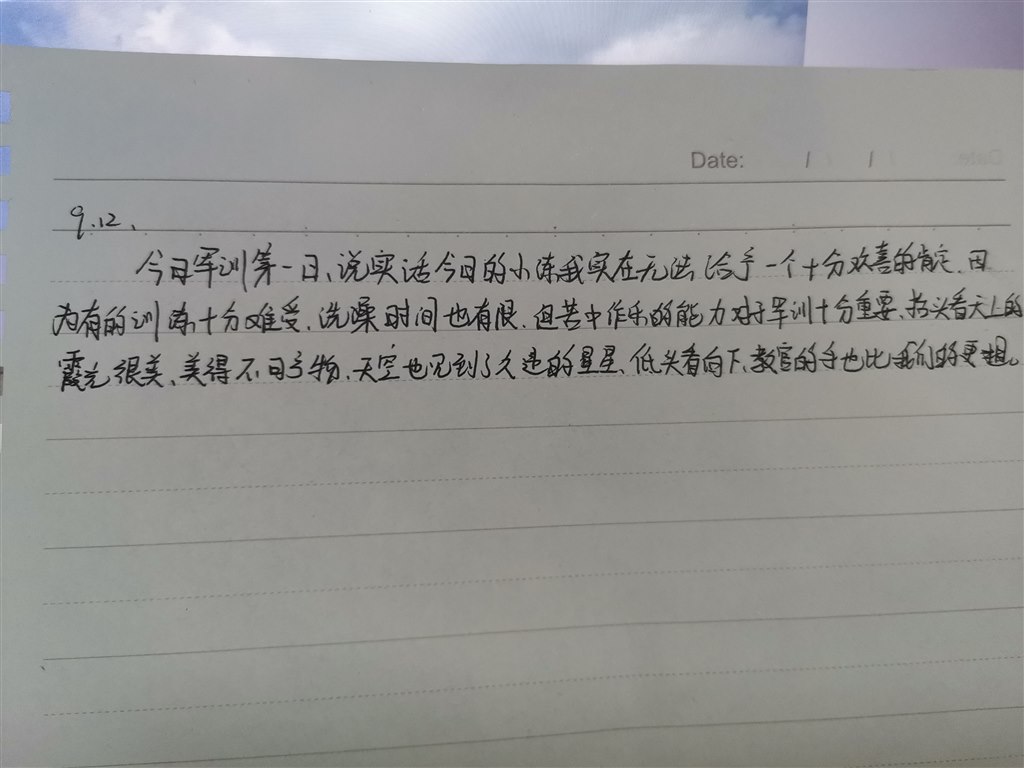 Date: / /
9.12.
今日军训第一日、说实话今日的小练我实在无法给予一个十分友善的肯定.因
为有的训练十分难受.洗澡时间也有限.但苦中作乐的能力对于军训十分重要.抬头看天上的
霞光很美、美得不可方物.天空也见到了久违的星星.低头看向下、教官的手也比我们的更粗.